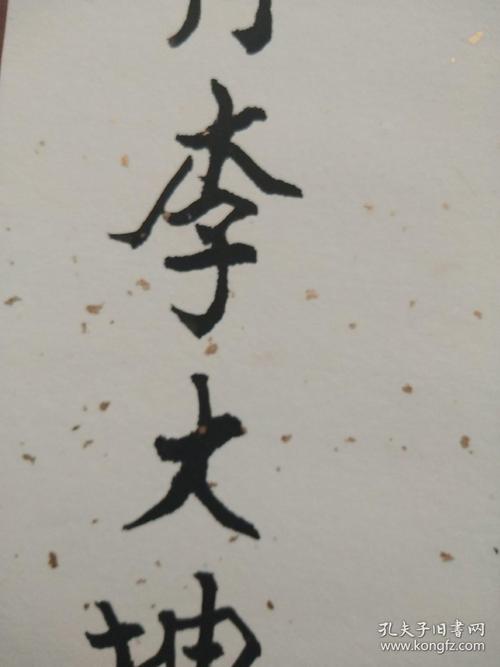 李大坤
孔夫子旧书网
www.kongfz.com